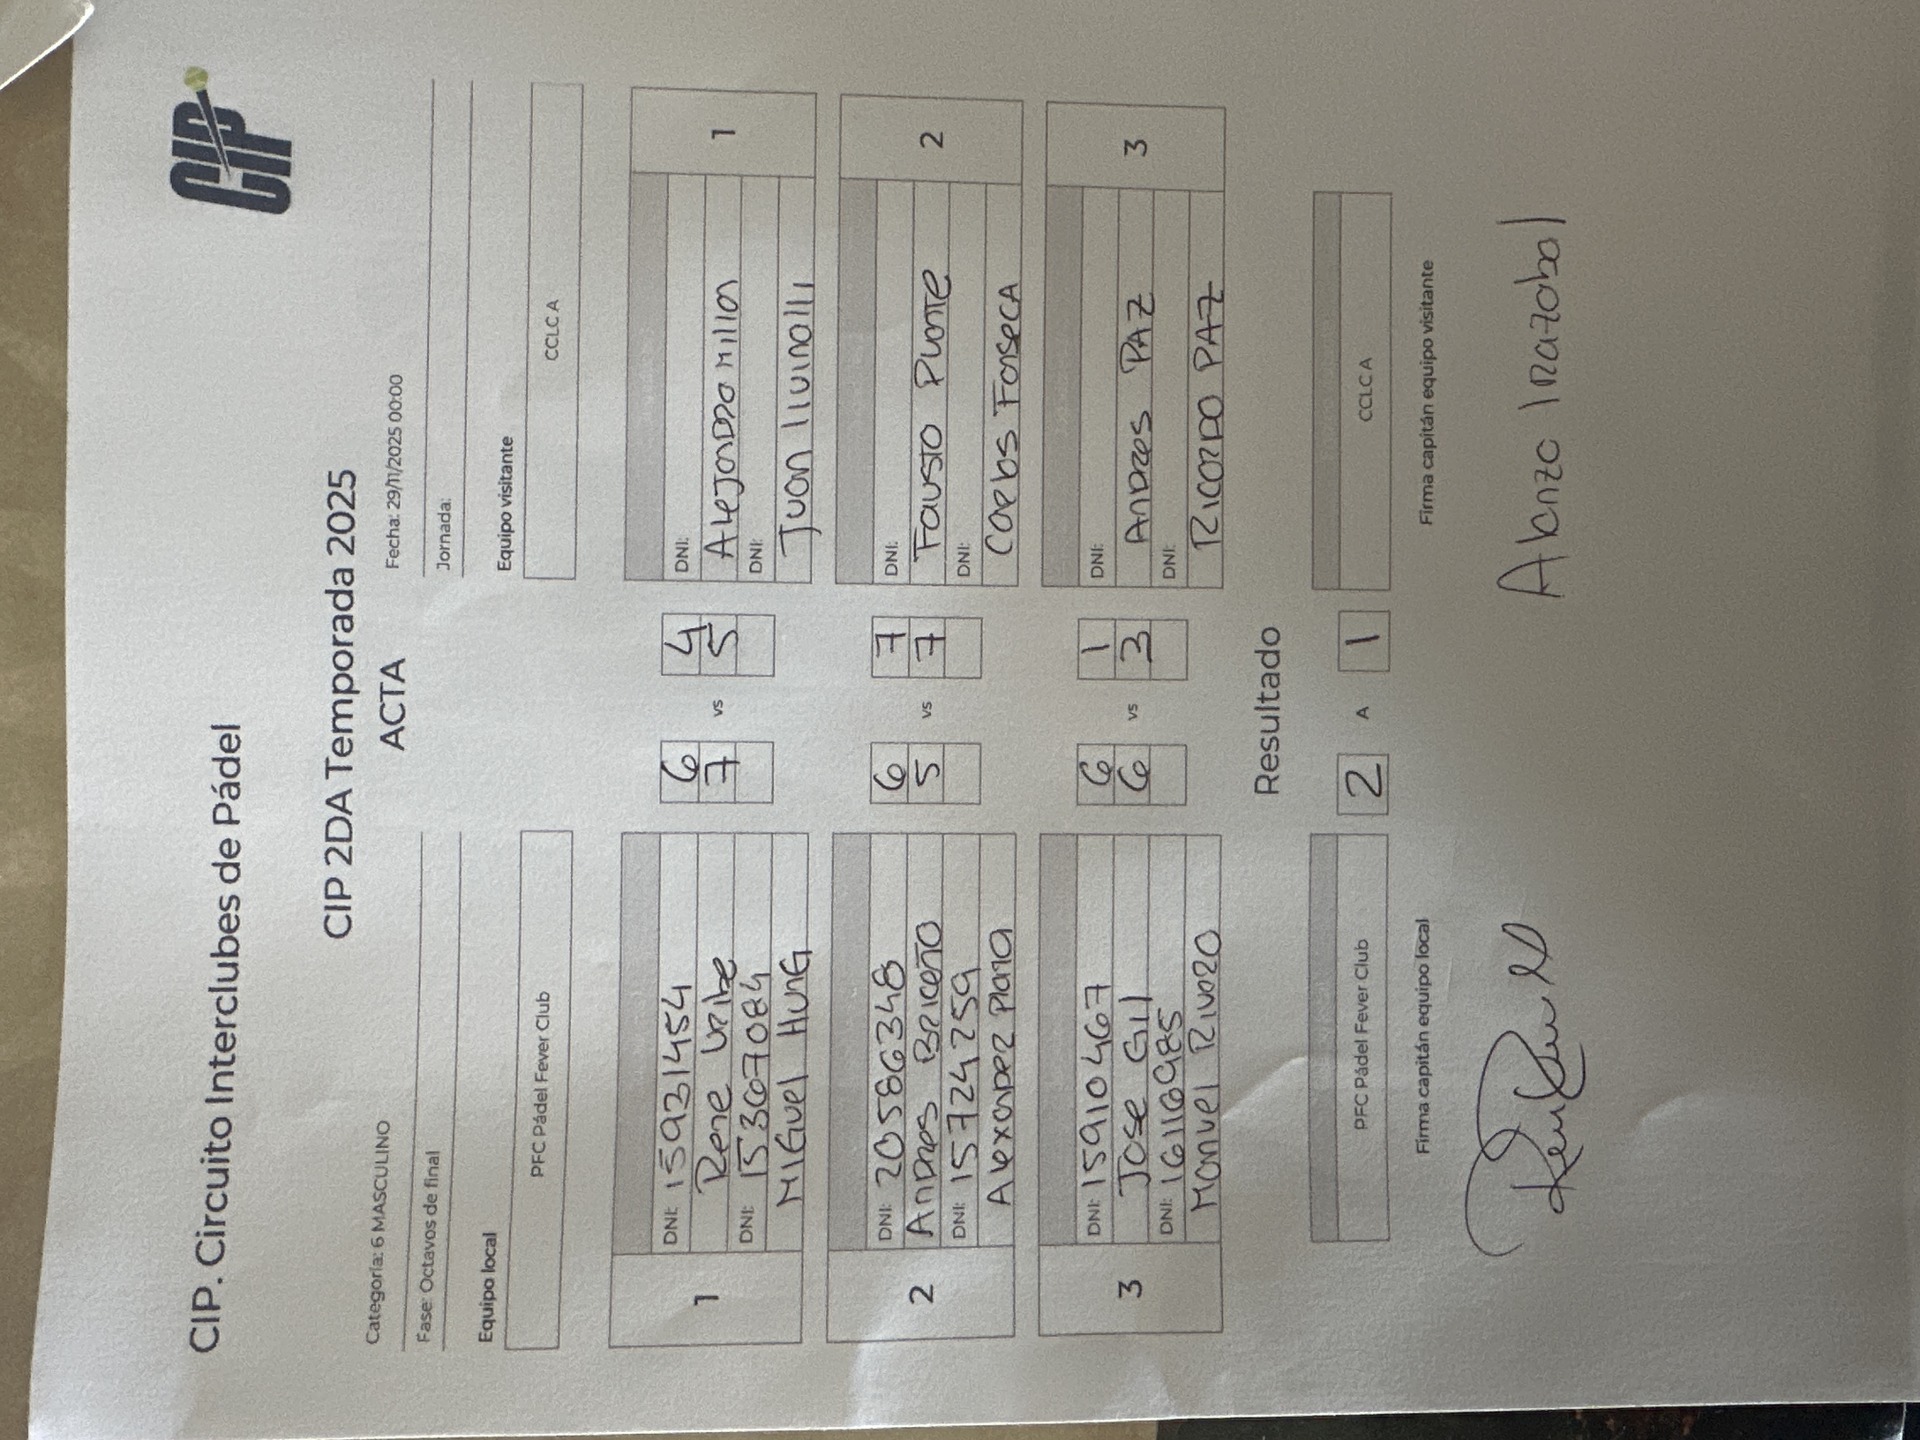 CIP. Circuito Interclubes de Pádel
CIP
CIP 2DA Temporada 2025
ACTA
Categoría: 6 MASCULINO
Fecha: 29/11/2025 00:00
Fase: Octavos de final
Jornada:
Equipo local
Equipo visitante
PFC Pádel Fever Club
CCLC A
1
DNI: 15931454
Rene Uribe
DNI: 15367084
Miguel Hung
6 vs 4
7 5
DNI:
Alejandro Millan
DNI:
Juan
1
2
DNI: 20586348
Andres Briceño
DNI: 15724259
Alexander Plana
6 vs 7
5 7
DNI:
Fausto Puente
DNI:
Carlos Fonseca
2
3
DNI: 15910467
Jose Gil
DNI: 16116985
Manuel Rivozo
6 vs 1
6 3
DNI:
Andres PAZ
DNI:
Ricardo PAZ
3
Resultado
PFC Pádel Fever Club
2 A 1
CCLC A
Firma capitán equipo local
Firma capitán equipo visitante